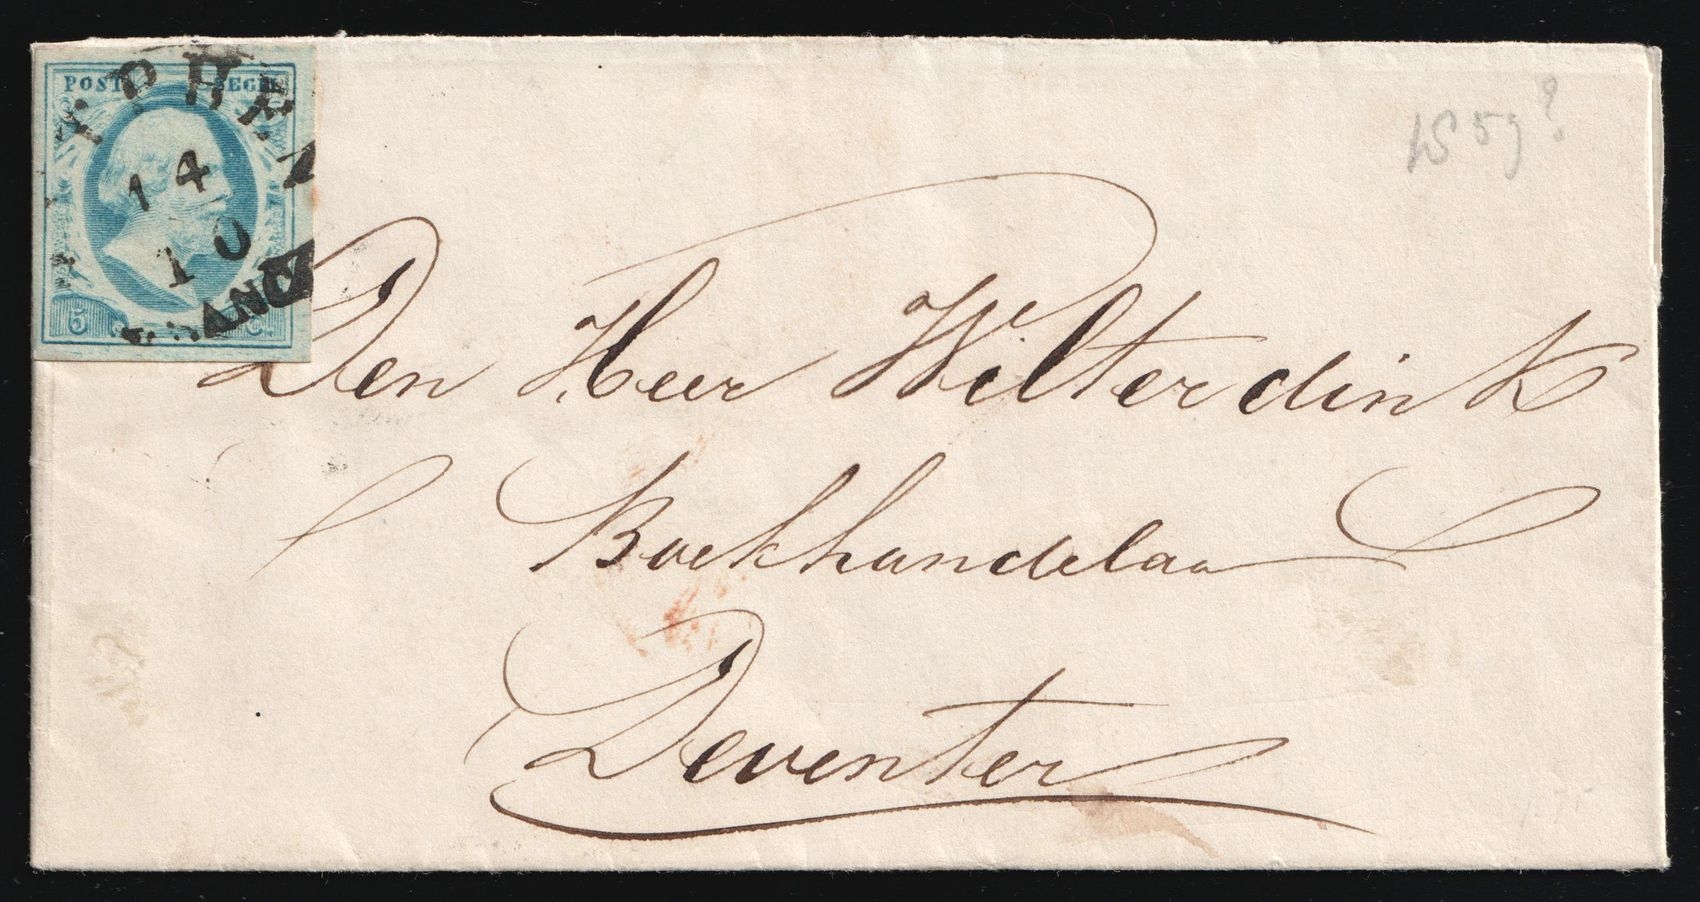 POST ZEGEL
14
10
FRANCO
5 C.
1859?
Den Heer Wilterdink
Boekhandelaar
Deventer